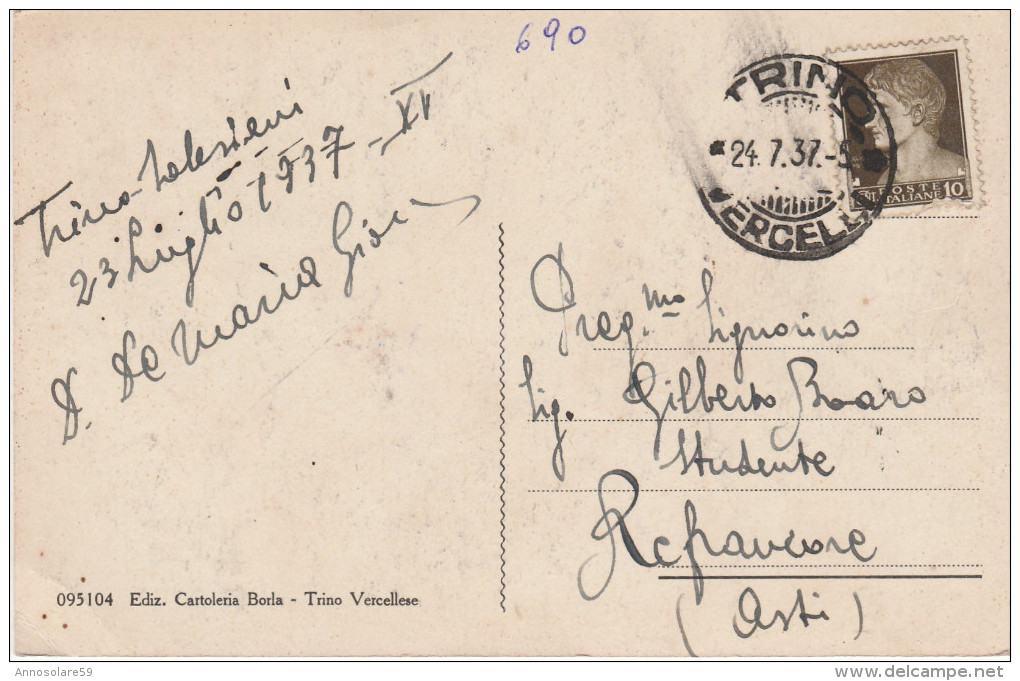 690
Trino-Salesiani
23 Luglio 1937-XV
D. De Maria Giov
TRINO
24.7.37.-5
VERCELL
POSTE
ITALIANE 10
Preg.mo Signorino
Sig. Gilberto Boaro
Studente
Refrancore
(Asti)
095104 Ediz. Cartoleria Borla - Trino Vercellese
Annosolare59
delcampe.net